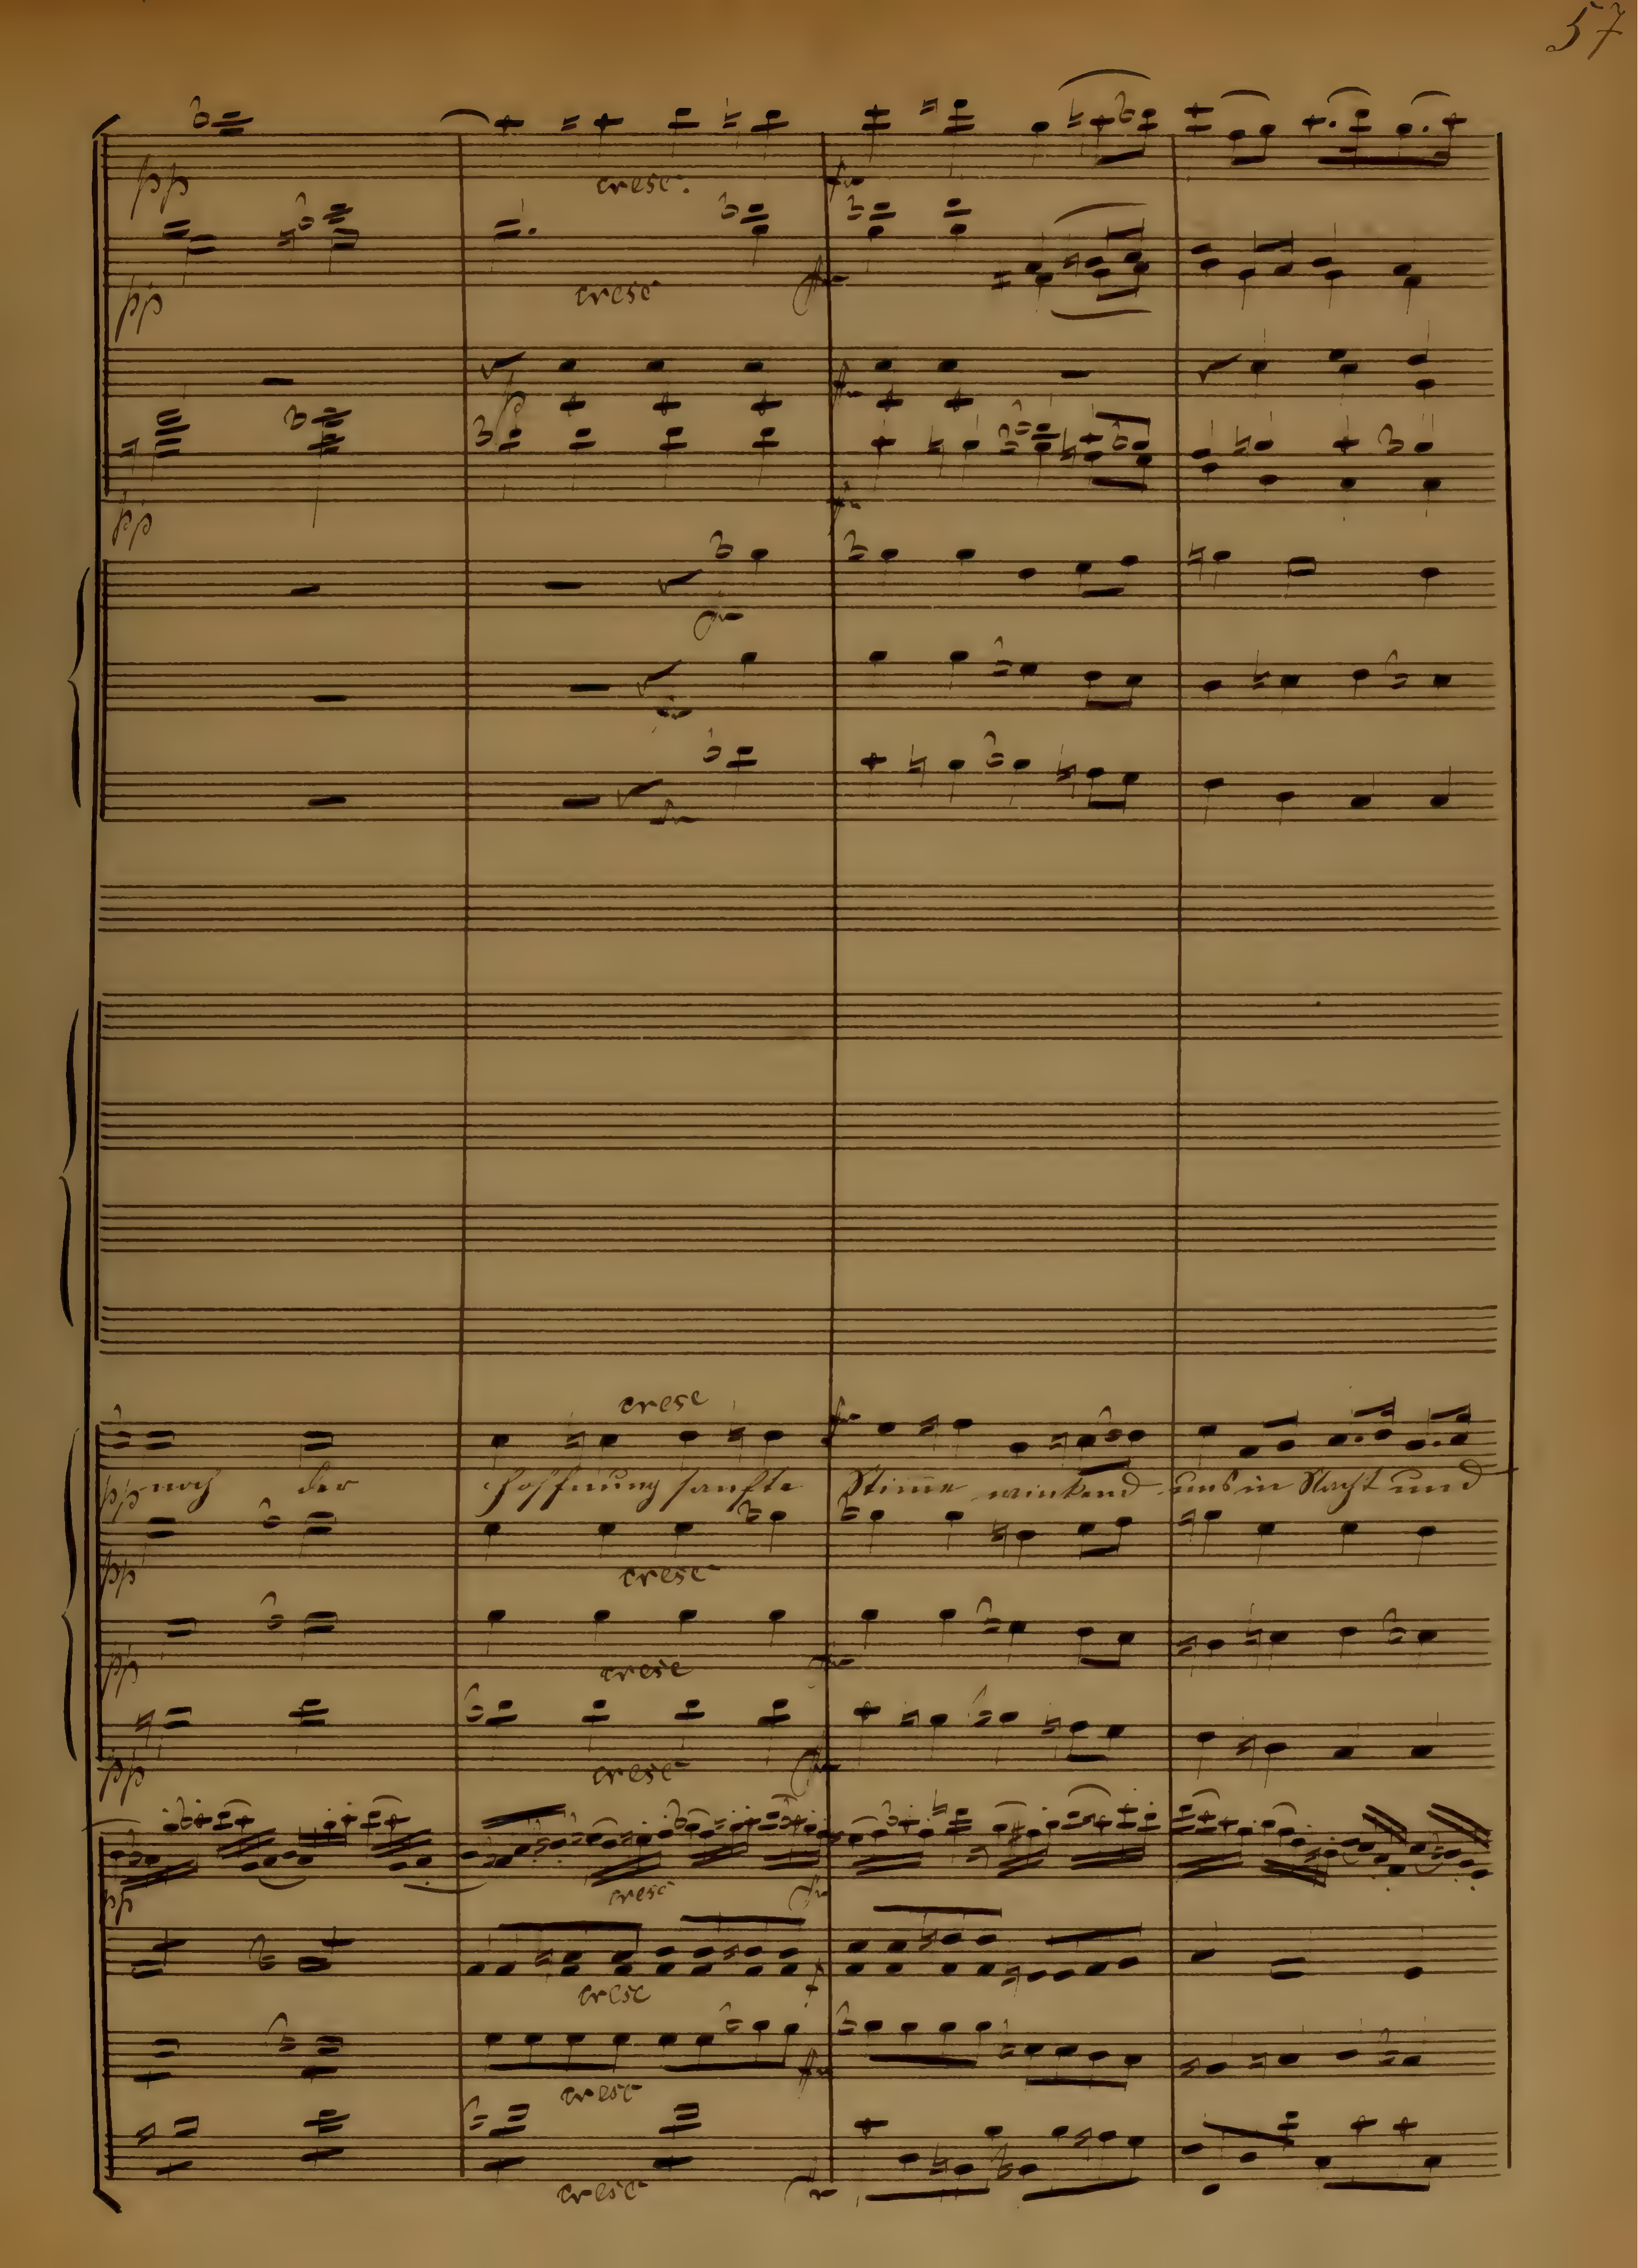 57
pp
cresc.
pp
cresc
p
pp
cresc
pp noch der Hoffnung sanfte Stimme winkend uns in Nacht und
pp
cresc
pp
cresc
pp
cresc
pp
cresc
cresc
cresc
cresc